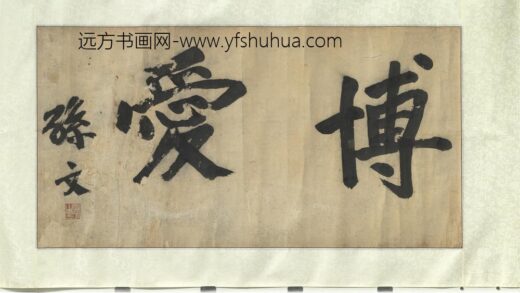 远方书画网-www.yfshuhua.com
博愛
孫文